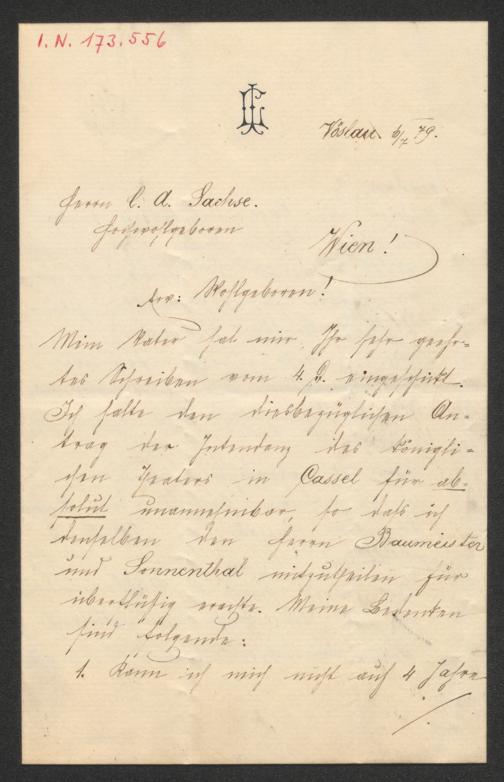 I. N. 173.556
Vöslau 6/7 79.
Herrn C. A. Sachse.
Hochwohlgeboren
Wien!
Ew: Wohlgeboren!
Mein Vater hat mir Ihr sehr geehr-
tes Schreiben vom 4. d. eingeschickt.
Ich halte den diesbezüglichen An-
trag der Intendanz des königli-
chen Theaters in Cassel für ab-
solut unannehmbar, so daß ich
denselben den Herrn Baumeister
und Sonnenthal mitzutheilen für
überflüßig erachte. Meine Bedenken
sind folgende:
1. Kann ich mich nicht auf 4 Jahre